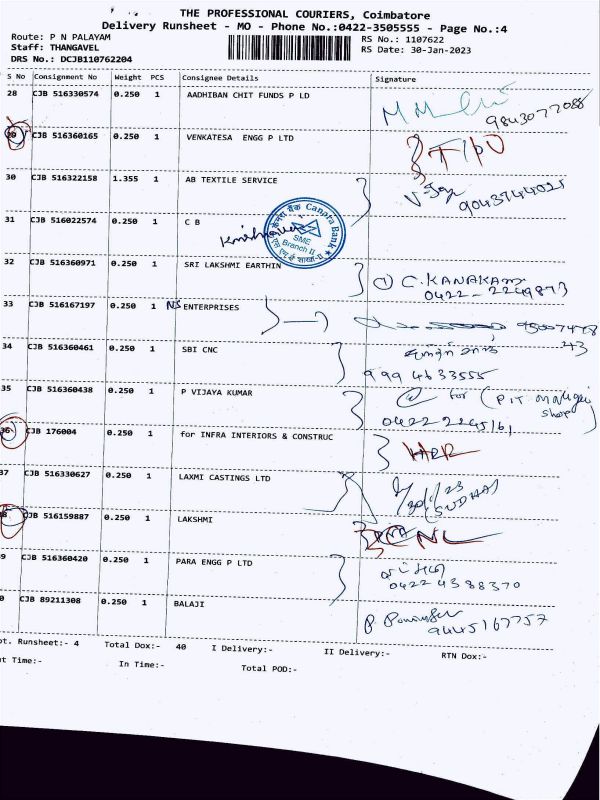 THE PROFESSIONAL COURIERS, Coimbatore
Delivery Runsheet - MO - Phone No.:0422-3505555 - Page No.:4
Route: P N PALAYAM
RS No.: 1107622
Staff: THANGAVEL
RS Date: 30-Jan-2023
DRS No.: DCJB110762204
S No Consignment No Weight PCS Consignee Details Signature
28 CJB 516330574 0.250 1 AADHIBAN CHIT FUNDS P LD
9843077088
CJB 516360165 0.250 1 VENKATESA ENGG P LTD
30 CJB 516322158 1.355 1 AB TEXTILE SERVICE
9043744025
31 CJB 516022574 0.250 1 C B
केनरा बैंक Canara Bank
SME
Branch II
32 CJB 516360971 0.250 1 SRI LAKSHMI EARTHIN
C. KANAKAM
0422-2249873
33 CJB 516167197 0.250 1 NS ENTERPRISES
34 CJB 516360461 0.250 1 SBI CNC
9994633555
35 CJB 516360438 0.250 1 P VIJAYA KUMAR
for (PIT Maligai
shop)
0422 2245161
36 CJB 176004 0.250 1 for INFRA INTERIORS & CONSTRUC
37 CJB 516330627 0.250 1 LAXMI CASTINGS LTD
30/1/23
(SUDHA)
8 CJB 516159887 0.250 1 LAKSHMI
CNL
9 CJB 516360420 0.250 1 PARA ENGG P LTD
0422 4388370
0 CJB 89211308 0.250 1 BALAJI
9445167757
ot. Runsheet:- 4 Total Dox:- 40 I Delivery:- II Delivery:- RTN Dox:-
t Time:- In Time:- Total POD:-